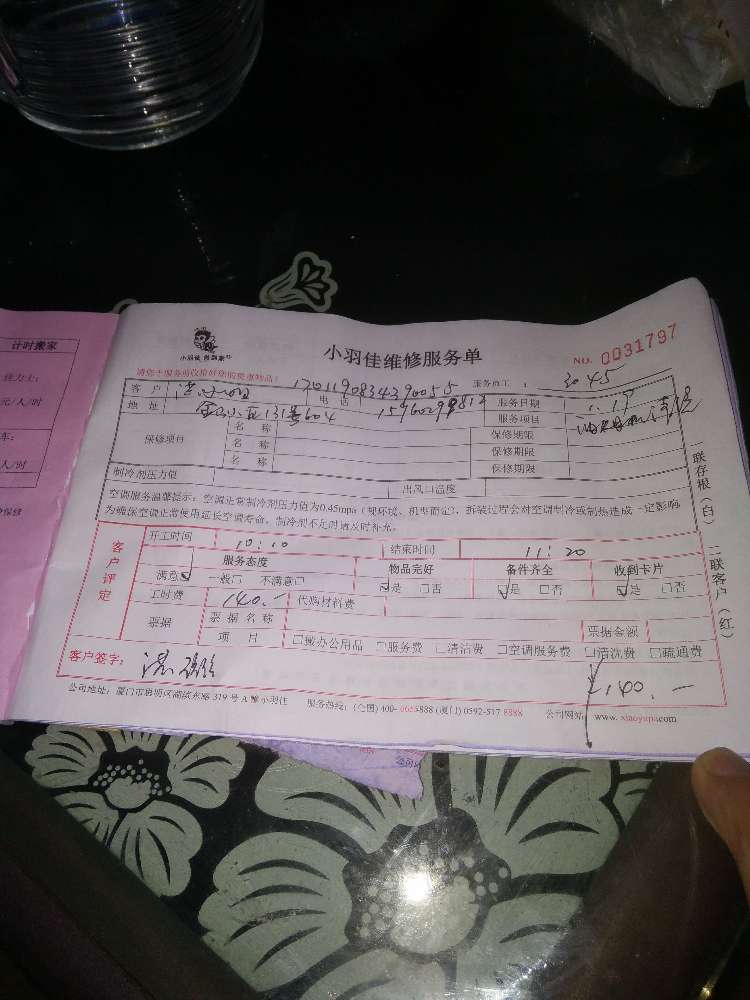 计时搬家
元/人/时
人/时
小羽佳维修服务单
NO. 0031797
请您于服务前收拾好您的贵重物品!
服务员工: 3045
客户
电话
服务日期 1.19
地址
服务项目
保修项目
名称
保修期限
名称
保修期限
名称
保修期限
制冷剂压力值
出风口温度
空调服务温馨提示:空调正常制冷剂压力值为0.45mpa(视环境、机型而定),拆装过程会对空调制冷或制热造成一定影响
为确保空调正常使用延长空调寿命,制冷剂不足时请及时补充。
客户评定
开工时间 10:10
结束时间 11:20
服务态度
物品完好
备件齐全
收到卡片
满意☑ 一般□ 不满意□
☑是 □否
☑是 □否
☑是 □否
工时费 140.-
代购材料费
票据
票据名称
票据金额
项目
□搬办公用品 □服务费 □清洁费 □空调服务费 □清洗费 □疏通费
客户签字:
¥140.-
公司地址:厦门市思明区 319号A
服务热线:(全国) 400-6655888 (厦门) 0592-517 8888
公司网站: www.xiaoyujia.com
联存根(白)
二联客户(红)